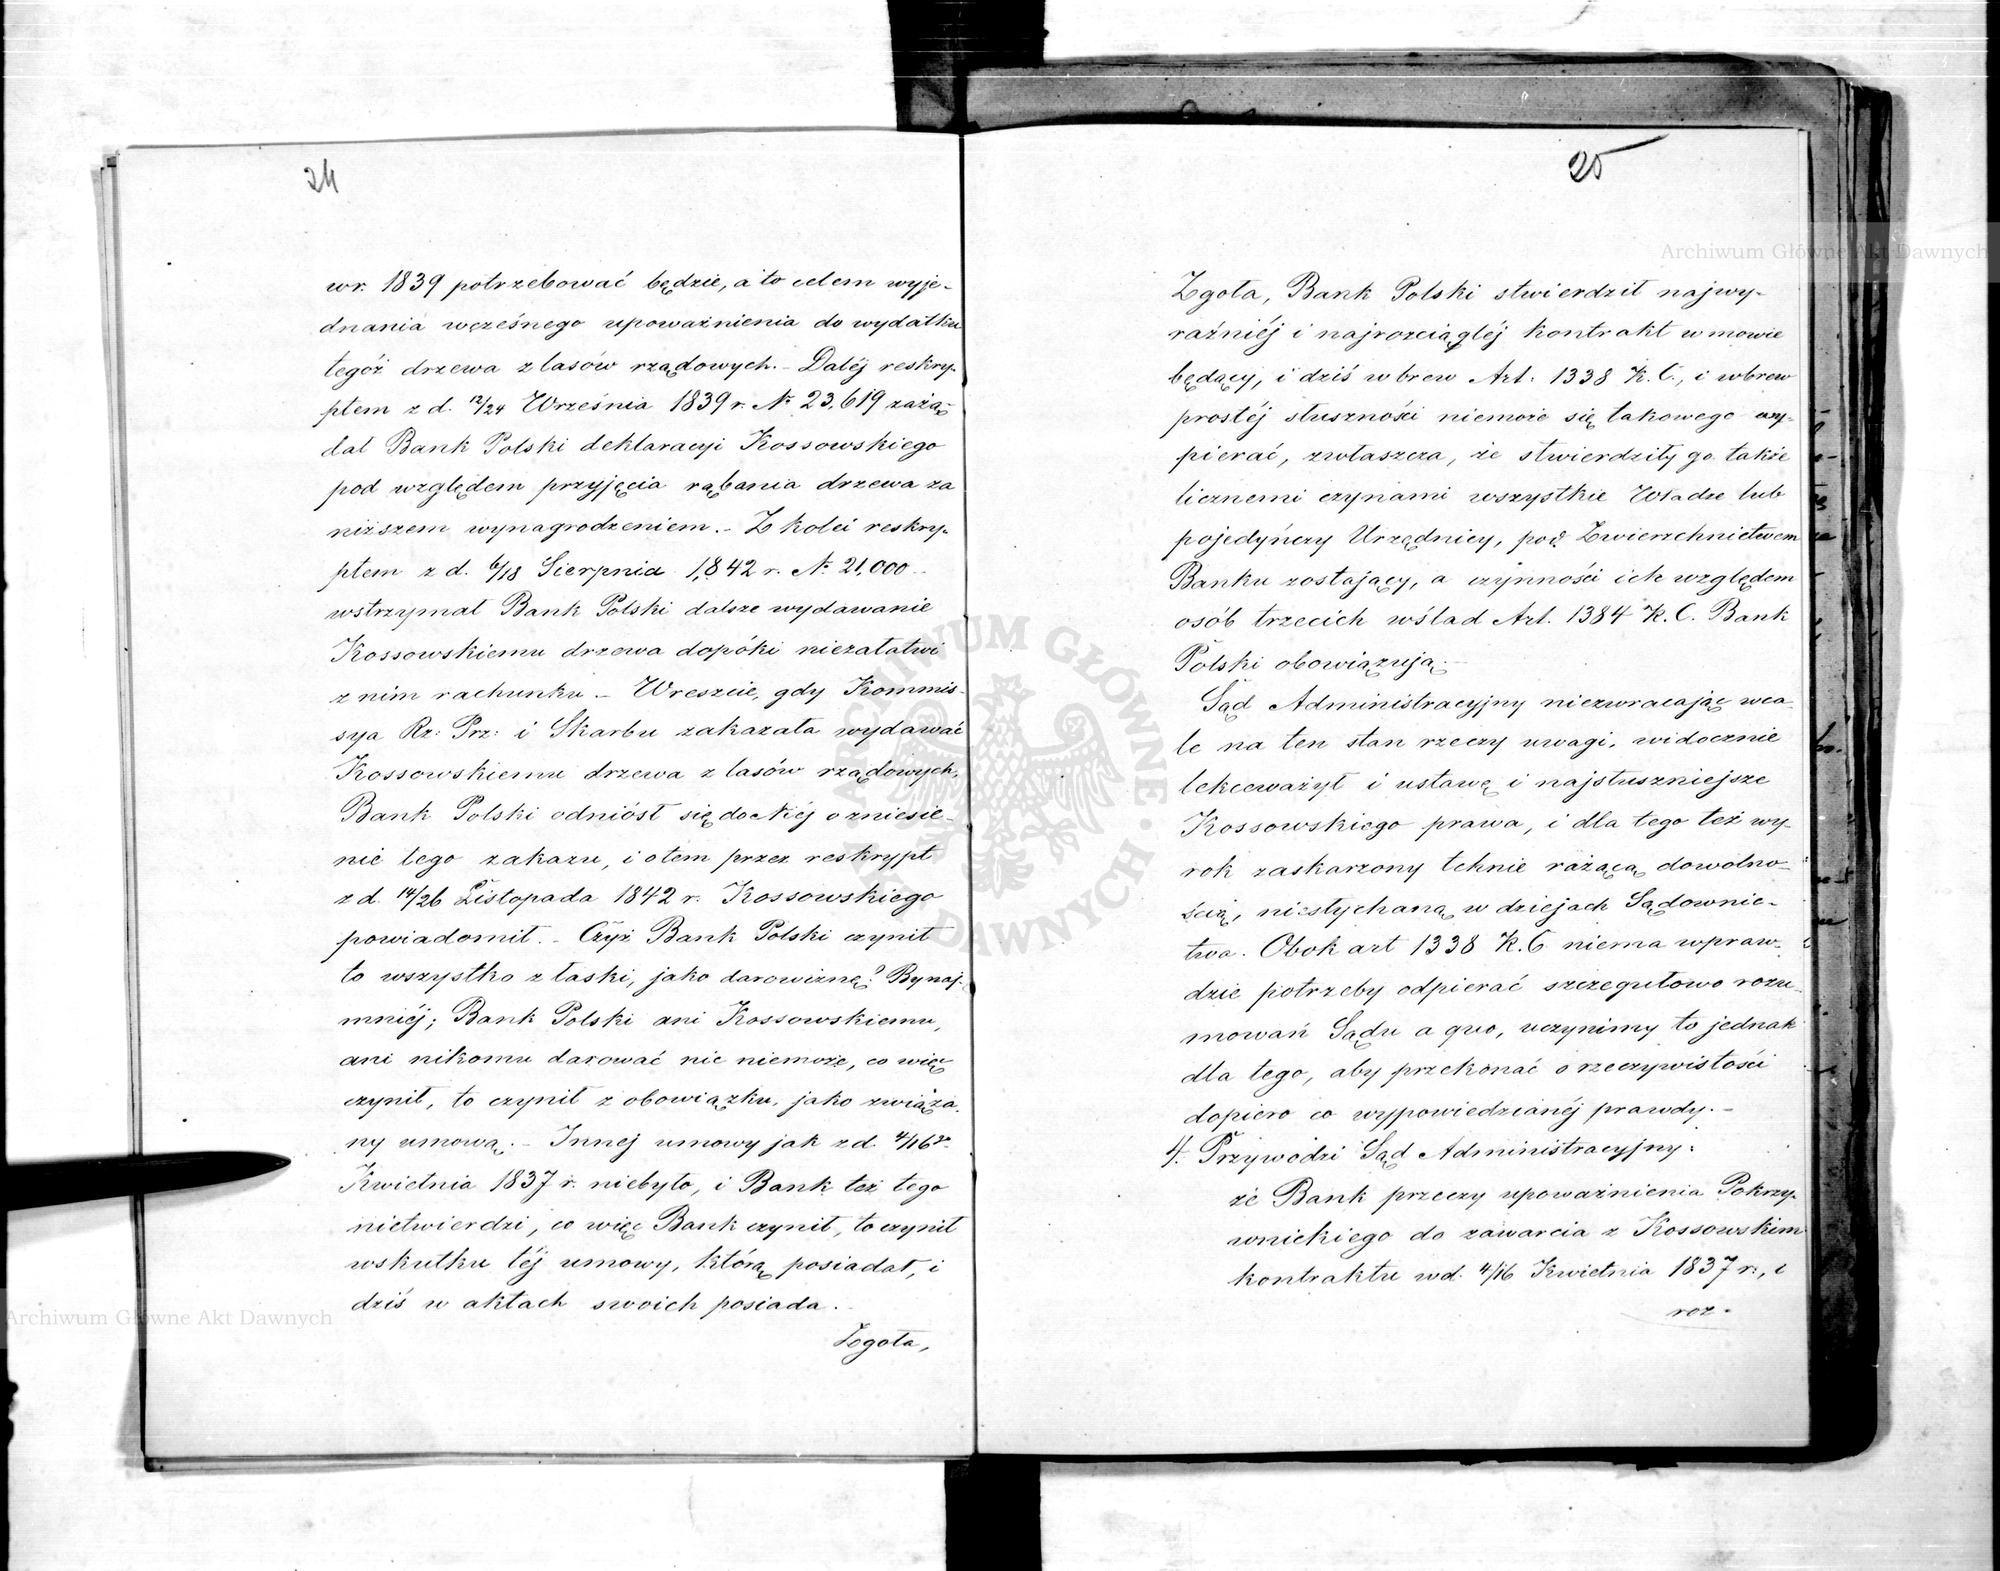 24
w r. 1839 potrzebować będzie, a to celem wyje-
dnania wcześnego upoważnienia do wydatku
tegóż drzewa z lasów rządowych. - Daléj reskry-
ptem z d. 12/24 Września 1839 r. № 23,619 zażą-
dał Bank Polski deklaracyi Kossowskiego
pod względem przyjęcia rąbania drzewa za
niższem wynagrodzeniem. - Z kolei reskry-
ptem z d. 6/18 Sierpnia 1,842 r. № 21,000 -
wstrzymał Bank Polski dalsze wydawanie
Kossowskiemu drzewa dopóki niezałatwi
z nim rachunku. - Wreszcie, gdy Kommis-
sya Rz: Prz: i Skarbu zakazała wydawać
Kossowskiemu drzewa z lasów rządowych,
Bank Polski odniósł się do Niéj o zniesie-
nie tego zakazu, i o tem przez reskrypt
z d. 14/26 Listopada 1842 r. Kossowskiego
powiadomił. - Czyż Bank Polski czynił
to wszystko z łaski, jako darowiznę? Bynaj-
mniéj; Bank Polski ani Kossowskiemu,
ani nikomu darować nic niemoże, co więc
czynił, to czynił z obowiązku, jako związa-
ny umową. - Innej umowy jak z d. 4/16go
Kwietnia 1837 r. niebyło, i Bank też tego
nietwierdzi, co więc Bank czynił, to czynił
wskutku téj umowy, którą posiadał, i
dziś w aktach swoich posiada. -
Zgoła,
25
Zgoła, Bank Polski stwierdził najwy-
raźniéj i najrozciągléj kontrakt w mowie
będący, i dziś wbrew Art: 1338 K. C., i wbrew
prostéj słuszności niemoże się takowego wy-
pierać, zwłaszcza, że stwierdziły go także
licznemi czynami wszystkie Władze lub
pojedyńczy Urzędnicy, pod Zwierzchnictwem
Banku zostający, a czynności ich względem
osób trzecich wślad Art. 1384 K. C. Bank
Polski obowiązują. -
Sąd Administracyjny niezwracając wca-
le na ten stan rzeczy uwagi, widocznie
lekceważył i ustawę i najsłuszniejsze
Kossowskiego prawa, i dla tego też wy-
rok zaskarzony tchnie rażącą dowolno-
ścią, niesłychaną w dziejach Sądownic-
twa. Obok art 1338 K. C niema wpraw-
dzie potrzeby odpierać szczegułowo rozu-
mowań Sądu a quo, uczynimy to jednak
dla tego, aby przekonać o rzeczywistości
dopiero co wypowiedzianéj prawdy. -
4. Przywodzi Sąd Administracyjny:
że Bank przeczy upoważnienia Pokrzy-
wnickiego do zawarcia z Kossowskim
kontraktu w d. 4/16 Kwietnia 1837 r., i
roz-
Archiwum Główne Akt Dawnych
Archiwum Główne Akt Dawnych
ARCHIWUM GŁÓWNE AKT DAWNYCH